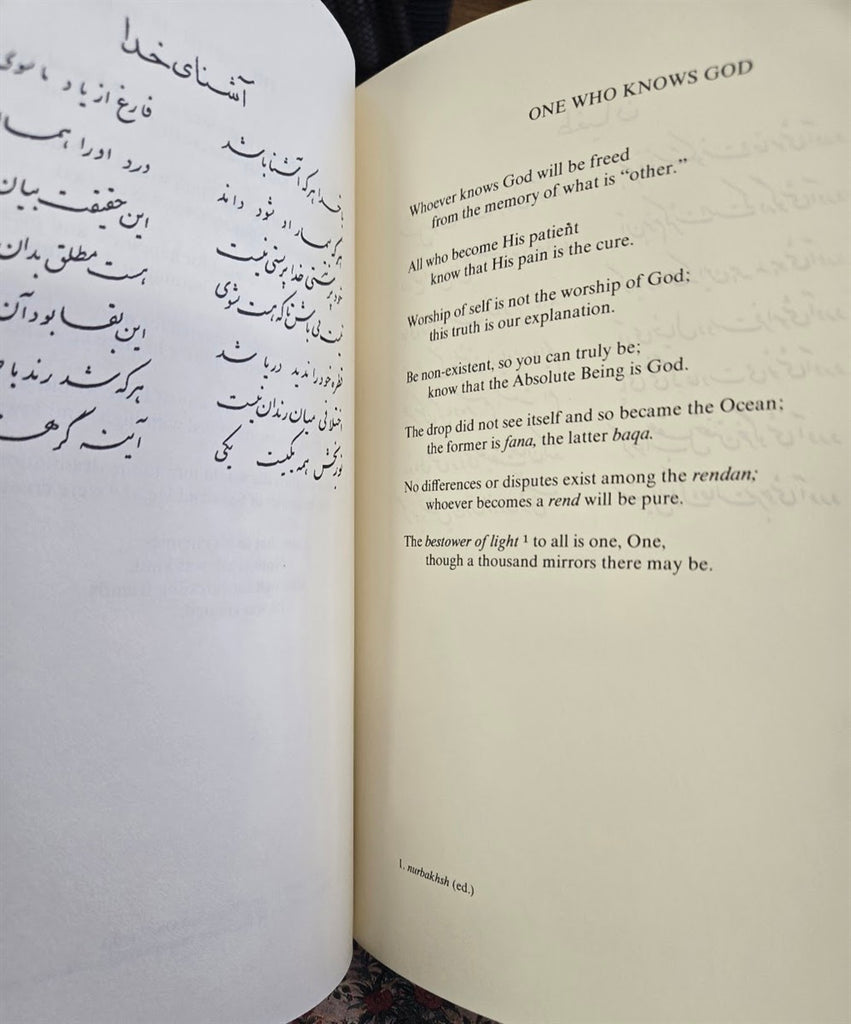 آشنای خدا
با خدا هرکه آشنا باشد فارغ از یاد ما سوی
هرکه بیمار او شود داند درد او را
خودپرستی خدا پرستی نیست این حقیقت بیان
نیست می باش تا که هست شوی هست مطلق بدان
قطره خود را ندید دریا شد این بقا بود آن
اختلافی میان رندان نیست هرکه شد رند
نوربخش همه یکیست یکی آینه گر
ONE WHO KNOWS GOD
Whoever knows God will be freed
from the memory of what is “other.”
All who become His patient
know that His pain is the cure.
Worship of self is not the worship of God;
this truth is our explanation.
Be non-existent, so you can truly be;
know that the Absolute Being is God.
The drop did not see itself and so became the Ocean;
the former is fana, the latter baqa.
No differences or disputes exist among the rendan;
whoever becomes a rend will be pure.
The bestower of light 1 to all is one, One,
though a thousand mirrors there may be.
1. nurbakhsh (ed.)